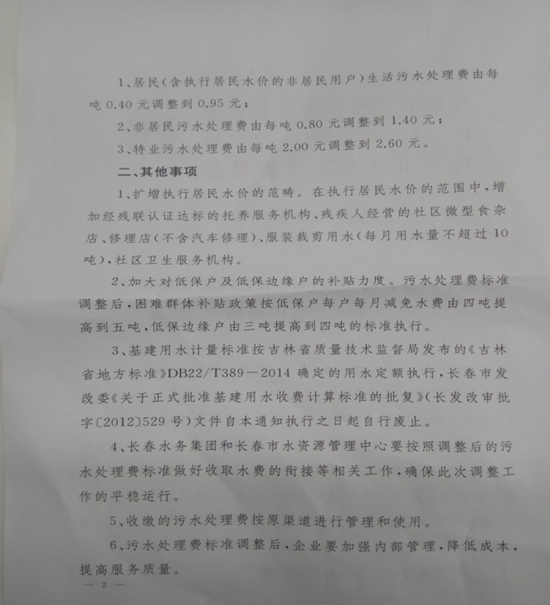 1、居民(含执行居民水价的非居民用户)生活污水处理费由每
吨0.40元调整到0.95元;
2、非居民污水处理费由每吨0.80元调整到1.40元;
3、特业污水处理费由每吨2.00元调整到2.60元。
二、其他事项
1、扩增执行居民水价的范畴。在执行居民水价的范围中,增
加经残联认证达标的托养服务机构、残疾人经营的社区微型食杂
店、修理店(不含汽车修理)、服装裁剪用水(每月用水量不超过10
吨),社区卫生服务机构。
2、加大对低保户及低保边缘户的补贴力度。污水处理费标准
调整后,困难群体补贴政策按低保户每户每月减免水费由四吨提
高到五吨,低保边缘户由三吨提高到四吨的标准执行。
3、基建用水计量标准按吉林省质量技术监督局发布的《吉林
省地方标准》DB22/T389-2014确定的用水定额执行,长春市发
改委《关于正式批准基建用水收费计算标准的批复》(长发改审批
字〔2012〕529号)文件自本通知执行之日起自行废止。
4、长春水务集团和长春市水资源管理中心要按照调整后的污
水处理费标准做好收取水费的衔接等相关工作,确保此次调整工
作的平稳运行。
5、收缴的污水处理费按原渠道进行管理和使用。
6、污水处理费标准调整后,企业要加强内部管理,降低成本,
提高服务质量。
— 2 —